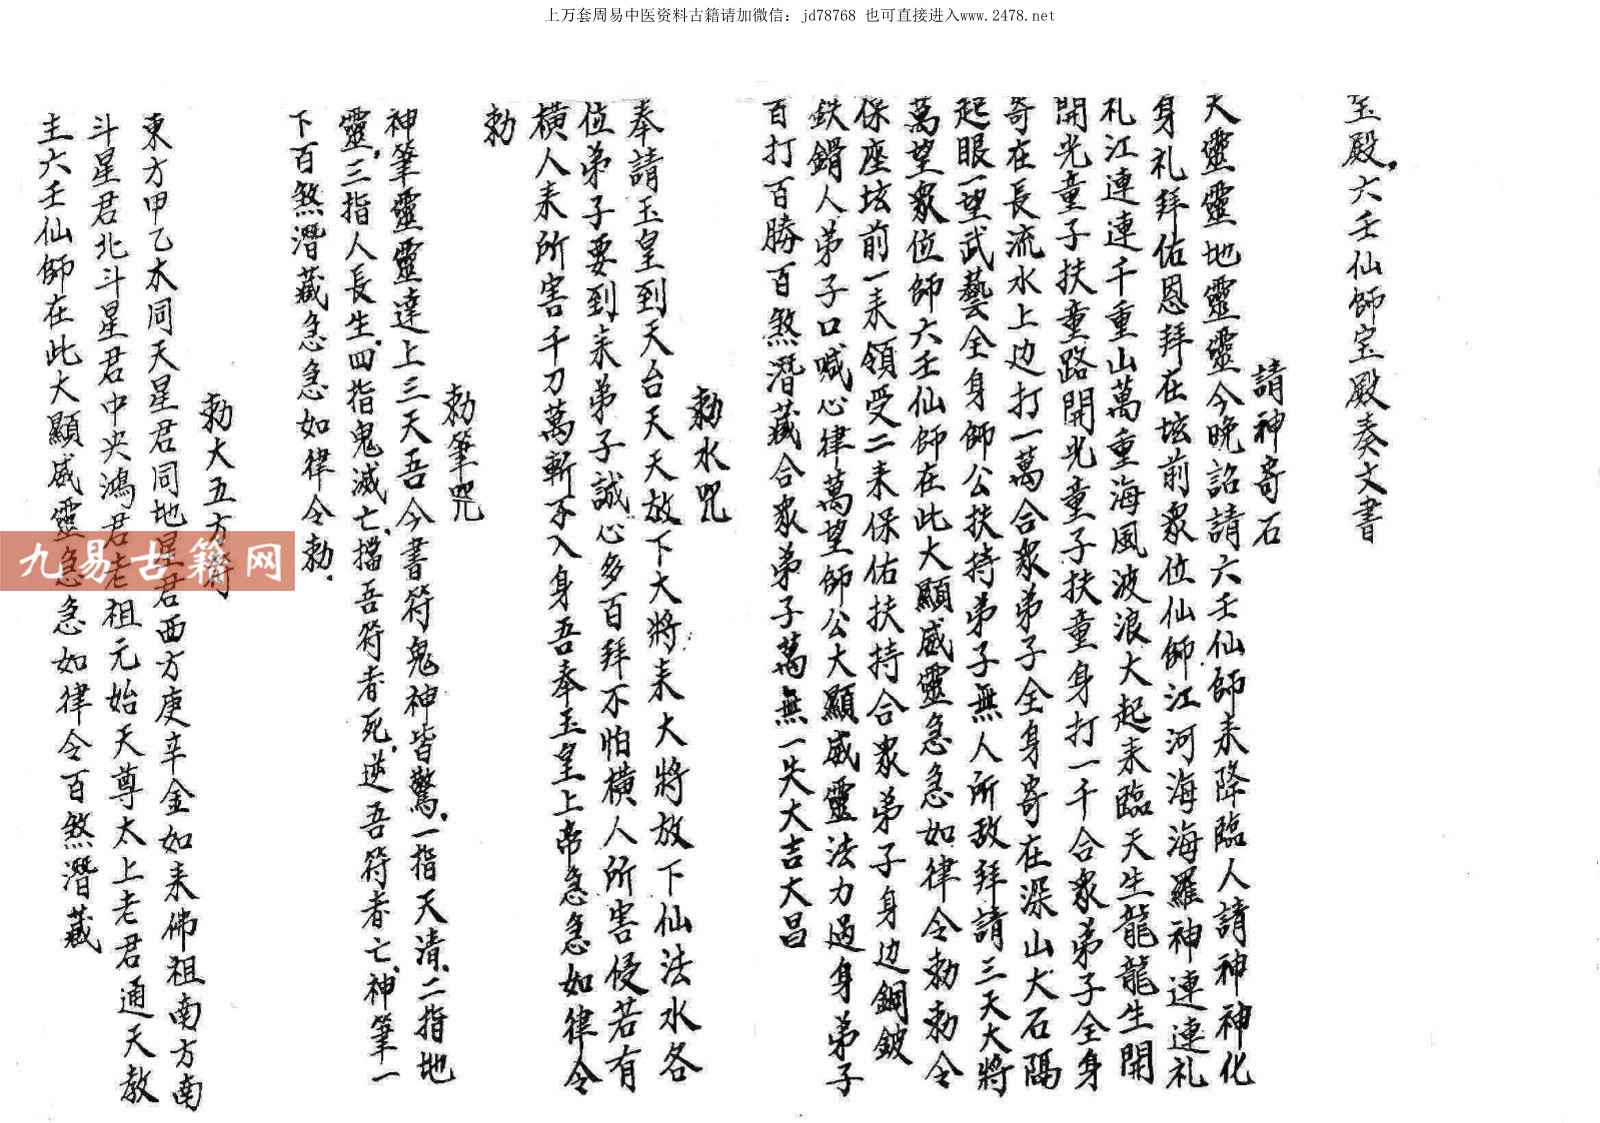 上万套周易中医资料古籍请加微信：jd78768 也可直接进入www.2478.net
玉殿,六壬仙師宝殿奏文書
請神寄石
天靈靈地靈靈今晚詔請六壬仙師耒降臨人請神神化
身礼拜佑恩拜在坛前衆位仙師江河海海羅神連連礼
礼江連連千重山萬重海風波浪大起耒臨天生龍龍生開
開光童子扶童路開光童子扶童身打一千合衆弟子全身
寄在長流水上边打一萬合衆弟子全身寄在深山大石隔
起眼一望武藝全身師公扶持弟子無人所敌拜請三天大將
萬望衆位師六壬仙師在此大顯威靈急急如律令勅勅令
保座坛前一耒領受二耒保佑扶持合衆弟子身边銅鈹
鉄鎖人弟子口喊心律萬望師公大顯威靈法力過身弟子
百打百勝百煞潛藏合衆弟子萬無一失大吉大昌
勅水咒
奉請玉皇到天台天天放下大將耒大將放下仙法水各
位弟子要到耒弟子誠心多百拜不怕橫人所害侵若有
橫人耒所害千刀萬斬不入身吾奉玉皇上帝急急如律令
勅
勅筆咒
神筆靈靈達上三天吾今書符鬼神皆驚.一指天清、二指地
靈,三指人長生,四指鬼滅亡,擋吾符者死,逆吾符者亡,神筆一
下百煞潛藏急急如律令勅.
勅大五方符
東方甲乙木同天星君同地星君西方庚辛金如耒佛祖南方南
斗星君北斗星君中央鴻君老祖元始天尊太上老君通天教
主六壬仙師在此大顯威靈急急如律令百煞潛藏
九易古籍网